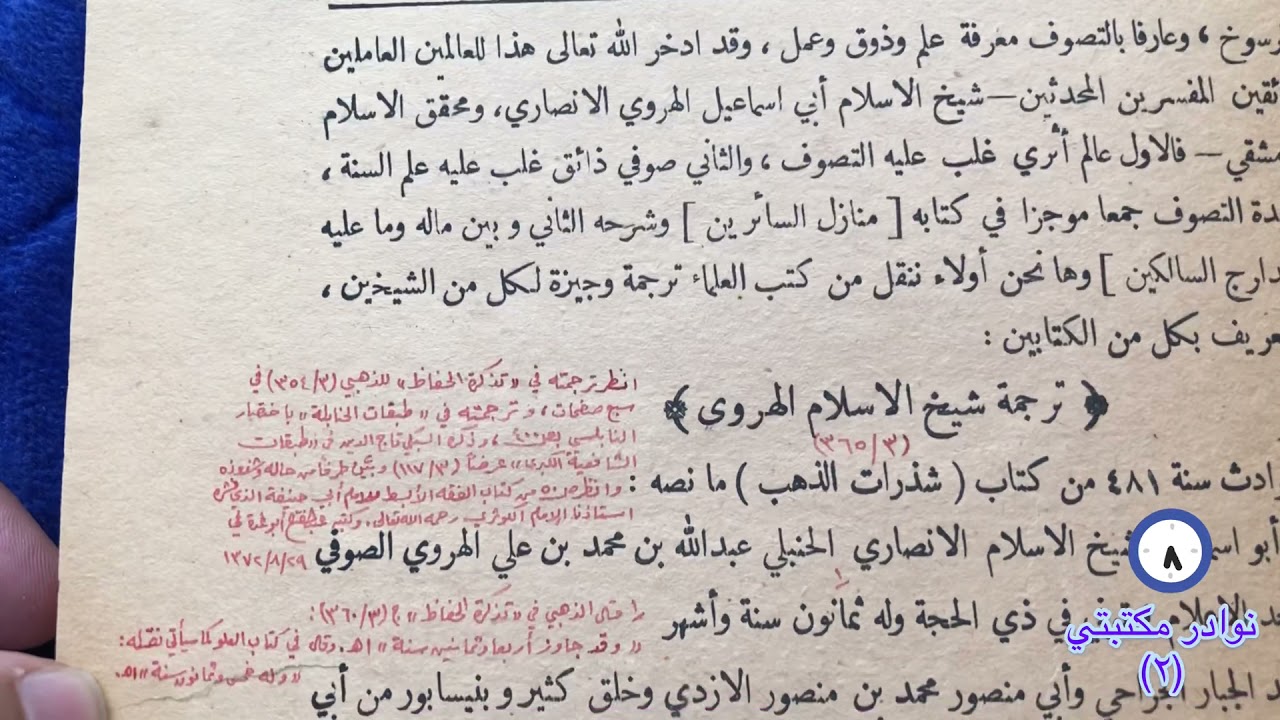 رسوخ ، وعارفا بالتصوف معرفة علم وذوق وعمل ، وقد ادخر الله تعالى هذا للعالمين العاملين
المفسرين المحدثين — شيخ الاسلام أبي اسماعيل الهروي الانصاري، ومحقق الاسلام
مشقي — فالاول عالم أثري غلب عليه التصوف ، والثاني صوفي ذائق غلب عليه علم السنة ،
دة التصوف جمعا موجزا في كتابه [ منازل السائرين ] وشرحه الثاني وبين ماله وما عليه
دارج السالكين ] وها نحن أولاء ننقل من كتب العلماء ترجمة وجيزة لكل من الشيخين ،
عريف بكل من الكتابين :
﴿ ترجمة شيخ الاسلام الهروي ﴾
(٣٦٥/٣)
انظر ترجمته في «تذكرة الحفاظ» للذهبي (٣٥٤/٣) في
سبع صفحات، وترجمته في «طبقات الحنابلة» باختصار
النابلسي ص ٤٠٠، وذكره السبكي تاج الدين في «طبقات
الشافعية الكبرى» عرضاً (١١٧/٣) وبيّن طرفاً من حاله
وانظر من كتاب الفقه الأبسط للإمام أبي حنيفة الذي نشره
استاذنا الإمام الكوثري رحمه الله تعالى. وكتبه عبد الفتاح أبو غدة في
١٣٧٢/٨/٢٩
ادث سنة ٤٨١ من كتاب ( شذرات الذهب ) ما نصه :
أبو اسم شيخ الاسلام الانصاري الحنبلي عبدالله بن محمد بن علي الهروي الصوفي
في ذي الحجة وله ثمانون سنة وأشهر
١) قال الذهبي في «تذكرة الحفاظ» (٣٦٠/٣):
«وقد جاوز أربعاً وثمانين سنة» اهـ. وقال في كتاب العلو كما سيأتي نقله:
«وله خمس وثمانون سنة» اهـ.
د الجبار الجراحي وأبي منصور محمد بن منصور الازدي وخلق كثير وبنيسابور من أبي
٨
نوادر مكتبتي
(٢)